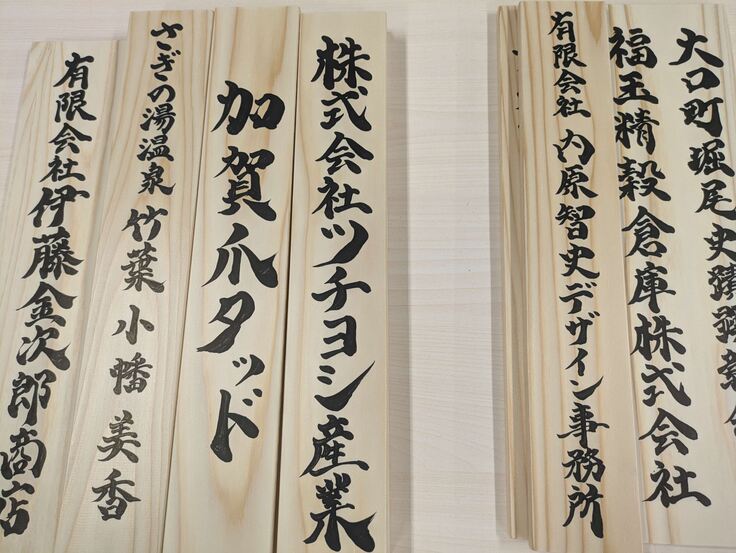 大口町堀尾史蹟顕彰会
福玉精穀倉庫株式会社
有限会社 内原智史デザイン事務所
株式会社ツチヨシ産業
加賀爪タッド
さぎの湯温泉 竹葉 小幡美香
有限会社伊藤金次郎商店